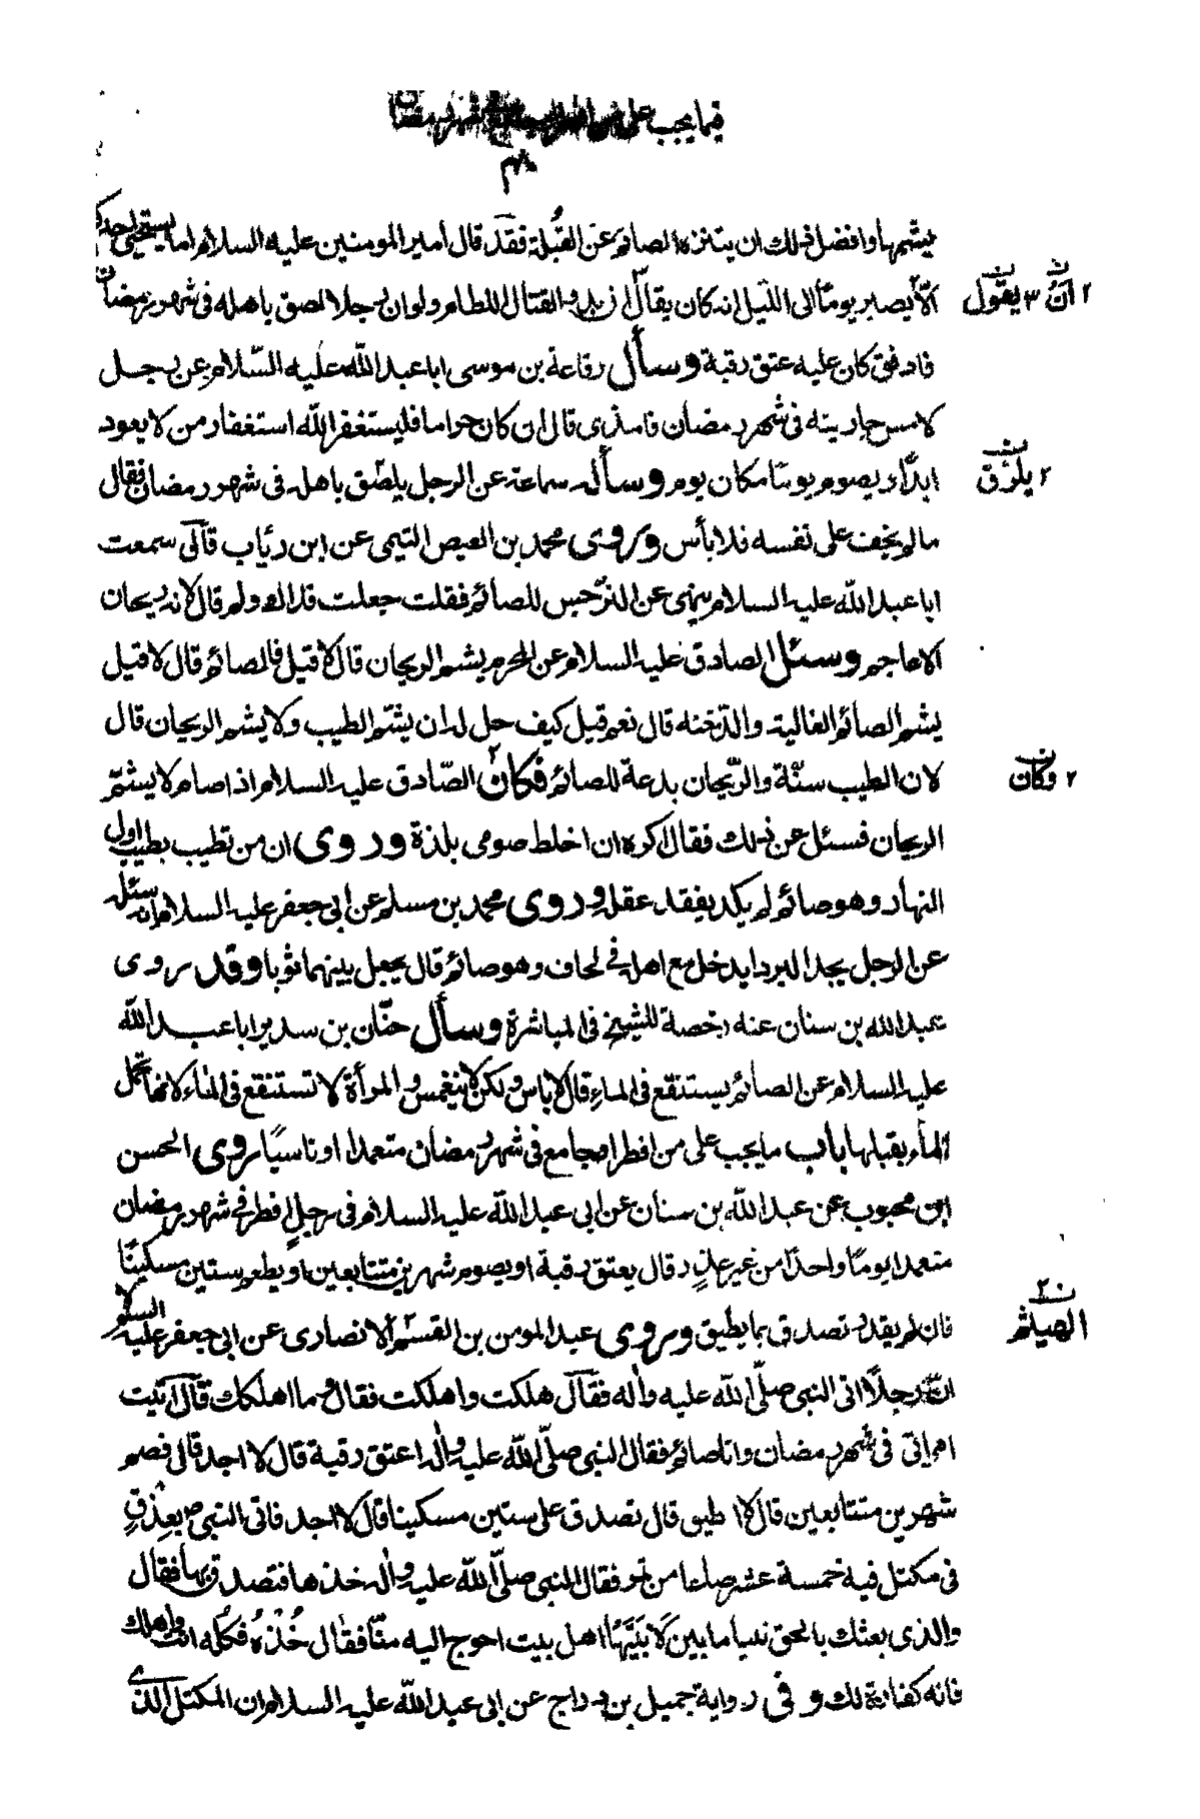 فيما يجب على من افطر شهر رمضان
يشمها وافضل ذلك ان يتنزه الصائم عن القبلة فقد قال امير المومنين عليه السلام اما يستحيى احدكم
ألّا يصبر يوما الى الليل انه كان يقال ان بدو القتال اللطام ولو ان رجلا لصق باهله فى شهر رمضان
٢ ان ٣ يقول
فادفق كان عليه عتق رقبة وسأل رفاعة بن موسى ابا عبد الله عليه السّلام عن رجل
لامس جاريته فى شهر رمضان فامذى قال ان كان حراما فليستغفر الله استغفار من لا يعود
ابدًا ويصوم يوما مكان يوم وسأله سماعة عن الرجل يلصق باهله فى شهر رمضان فقال
٢ يلزق
ما لم يخف على نفسه فلا بأس وروى محمد بن الفيض التيمى عن ابن رئاب قال سمعت
ابا عبد الله عليه السلام ينهى عن النرجس للصائم فقلت جعلت فداك ولم قال لانه ريحان
الاعاجم وسئل الصادق عليه السلام عن المحرم يشم الريحان قال لا قيل فالصائم قال لا قيل
يشم الصائم الغالية والدخنة قال نعم قيل كيف حل له ان يشم الطيب ولا يشم الريحان قال
لان الطيب سنّة والريحان بدعة للصائم فكان الصّادق عليه السلام اذا صام لا يشتمّ
٢ وكان
الريحان فسئل عن ذلك فقال اكره ان اخلط صومى بلذة وروى ان من تطيب بطيب اول
النهار وهو صائم لم يكد يفقد عقله وروى محمد بن مسلم عن ابى جعفر عليه السلام انه سئله
عن الرجل يجد البرد ايدخل مع اهله فى لحاف وهو صائم قال يجعل بينهما ثوبا وقد روى
عبد الله بن سنان عنه رخصة للشيخ فى المباشرة وسأل حنّان بن سدير ابا عبد الله
عليه السلام عن الصائم يستنقع فى الماء قال لا باس ولكن لا ينغمس والمرأة لا تستنقع فى الماء لانها تحمل
الماء بقبلها باب ما يجب على من افطر او جامع فى شهر رمضان متعمدا او ناسيًا روى الحسن
ابن محبوب عن عبد الله بن سنان عن ابى عبد الله عليه السلام فى رجل افطر فى شهر رمضان
متعمدا يومًا واحدًا من غير عذر قال يعتق رقبة او يصوم شهرين متتابعين او يطعم ستين مسكينًا
فان لم يقدر تصدق بما يطيق وروى عبد المومن بن القسم الانصارى عن ابى جعفر عليه السلام
٢ الهيثم
انّ رجلًا اتى النبى صلّى الله عليه واله فقال هلكت واهلكت فقال وما اهلكك قال اتيت
امراتى فى شهر رمضان وانا صائم فقال النبى صلّى الله عليه واله اعتق رقبة قال لا اجد قال فصم
شهرين متتابعين قال لا اطيق قال تصدق على ستين مسكينا قال لا اجد فاتى النبى ص بعذق
فى مكتل فيه خمسة عشر صاعا من تمر فقال النبى صلّى الله عليه واله خذها فتصدق بها فقال
والذى بعثك بالحق نبيا ما بين لابتيها اهل بيت احوج اليه منّا فقال خُذهُ فكُله انت واهلك
فانه كفارة لك وفى رواية جميل بن دراج عن ابى عبد الله عليه السلام ان المكتل الذى